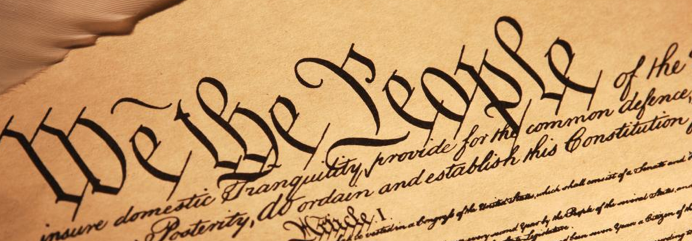 We the People of the
insure domestic Tranquility, provide for the common defence,
Posterity, do ordain and establish this Constitution
Article I
vested in a Congress of the United States, which shall consist of a Senate and
every second Year by the People of the several States, and
Legislature.
seven Years a Citizen of the